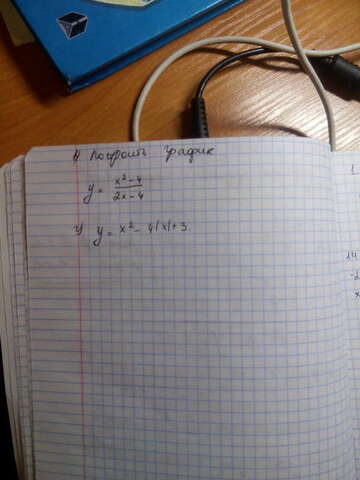 1) Построить график
y = \frac{x² - 4}{2x - 4}
2) y = x² - 4|x| + 3.
1
14
-2
x